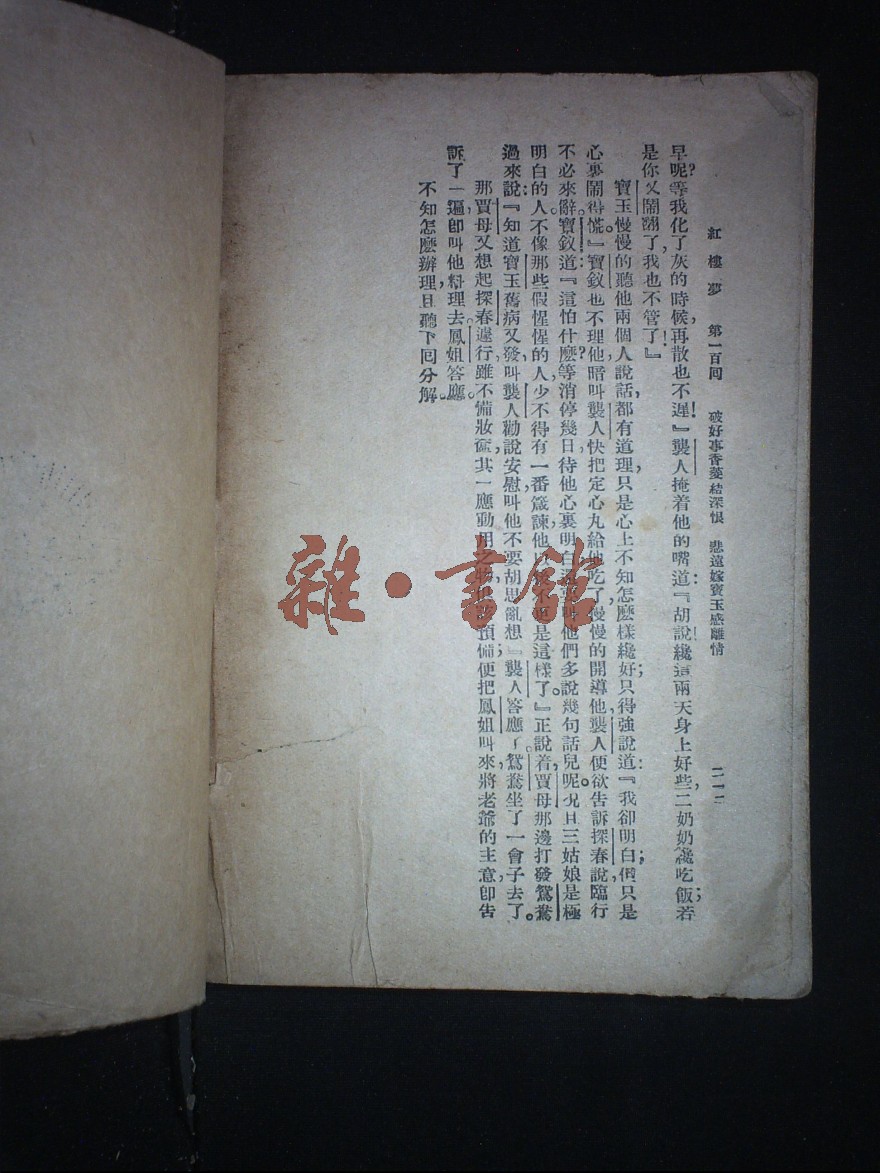 紅樓夢 第一百回 破好事香菱結深恨 悲遠嫁寶玉感離情 二一二
早呢?等我化了灰的時候,再散也不遲!』襲人掩着他的嘴道:『胡說!纔這兩天身上好些,二奶奶纔吃飯;若
是你又鬧翻了,我也不管了!』
寶玉慢慢的聽他兩個人說話,都有道理,只是心上不知怎麼樣纔好;只得強說道:『我卻明白;但只是
心裏鬧得慌。』寶釵也不理他,暗叫襲人快把定心丸給他吃了,慢慢的開導他。襲人便欲告訴探春說,臨行
不必來辭。寶釵道:『這怕什麼?等消停幾日,待他心裏明白,還要叫他們多說幾句話兒呢。況且三姑娘是極
明白的人,不像那些假惺惺的人,少不得有一番箴諫,他以後是這樣了。』正說着,賈母那邊打發鴛鴦
過來說:『知道寶玉舊病又發,叫襲人勸說安慰,叫他不要胡思亂想。』襲人答應了。鴛鴦坐了一會子去了。
那賈母又想起探春遠行,雖不備妝奩,其一應動用之物,俱該預備;便把鳳姐叫來,將老爺的主意,即告
訴了一遍,即叫他料理去。鳳姐答應。
不知怎麼辦理,且聽下回分解。
雜·書館